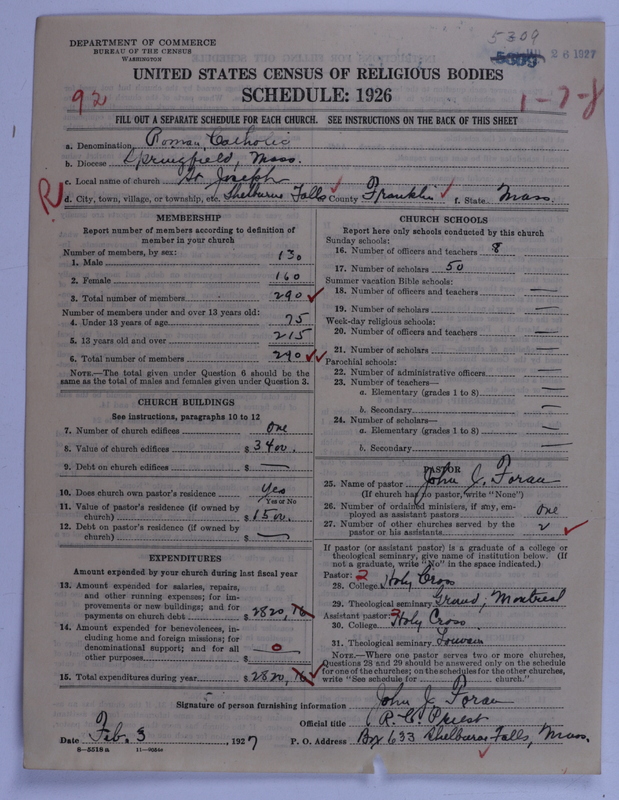 DEPARTMENT OF COMMERCE
BUREAU OF THE CENSUS
WASHINGTON
5309
5309
26 1927
UNITED STATES CENSUS OF RELIGIOUS BODIES
SCHEDULE: 1926
92
1-7-8
FILL OUT A SEPARATE SCHEDULE FOR EACH CHURCH. SEE INSTRUCTIONS ON THE BACK OF THIS SHEET
a. Denomination Roman Catholic
b. Diocese Springfield, Mass.
c. Local name of church St Joseph
R
d. City, town, village, or township, etc. Shelburne Falls County Franklin f. State Mass.
MEMBERSHIP
Report number of members according to definition of
member in your church
Number of members, by sex:
1. Male 130
2. Female 160
3. Total number of members 290
Number of members under and over 13 years old:
4. Under 13 years of age 75
5. 13 years old and over 215
6. Total number of members 290
NOTE.—The total given under Question 6 should be the
same as the total of males and females given under Question 3.
CHURCH BUILDINGS
See instructions, paragraphs 10 to 12
7. Number of church edifices One
8. Value of church edifices $ 3400.
9. Debt on church edifices $ —
10. Does church own pastor's residence Yes
Yes or No
11. Value of pastor's residence (if owned by
church) $ 1500.
12. Debt on pastor's residence (if owned by
church) $ —
EXPENDITURES
Amount expended by your church during last fiscal year
13. Amount expended for salaries, repairs,
and other running expenses; for im-
provements or new buildings; and for
payments on church debt $ 2820, 76
14. Amount expended for benevolences, in-
cluding home and foreign missions; for
denominational support; and for all
other purposes $ 0
15. Total expenditures during year $ 2820, 76
CHURCH SCHOOLS
Report here only schools conducted by this church
Sunday schools:
16. Number of officers and teachers 8
17. Number of scholars 50
Summer vacation Bible schools:
18. Number of officers and teachers —
19. Number of scholars —
Week-day religious schools:
20. Number of officers and teachers —
21. Number of scholars —
Parochial schools:
22. Number of administrative officers —
23. Number of teachers—
a. Elementary (grades 1 to 8) —
b. Secondary —
24. Number of scholars—
a. Elementary (grades 1 to 8) —
b. Secondary —
PASTOR
25. Name of pastor John J. Foran
(If church has no pastor, write "None")
26. Number of ordained ministers, if any, em-
ployed as assistant pastors One
27. Number of other churches served by the
pastor or his assistants 2
If pastor (or assistant pastor) is a graduate of a college or
theological seminary, give name of institution below. (If
not a graduate, write "No" in the space indicated.)
Pastor: 2
28. College Holy Cross
29. Theological seminary Grand, Montreal
Assistant pastor:
30. College Holy Cross
31. Theological seminary Louvain
NOTE.—Where one pastor serves two or more churches,
Questions 28 and 29 should be answered only on the schedule
for one of the churches; on the schedules for the other churches,
write "See schedule for church."
Signature of person furnishing information John J. Foran
Official title R. C. Priest
Date Feb. 3, 1927 P. O. Address Box 633 Shelburne Falls, Mass.
8-5518a 11-9054a